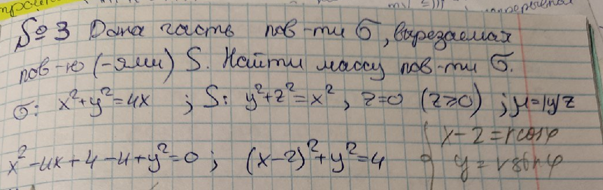 №3 Дана часть пов-ти σ, вырезаемая
пов-ю (-ями) S. Найти массу пов-ти σ.
σ: x²+y²=4x ; S: y²+z²=x², z=0 (z≥0) ; μ=|y|z
x²-4x+4-4+y²=0 ; (x-2)²+y²=4
{ x-2=rcosφ
y=rsinφ